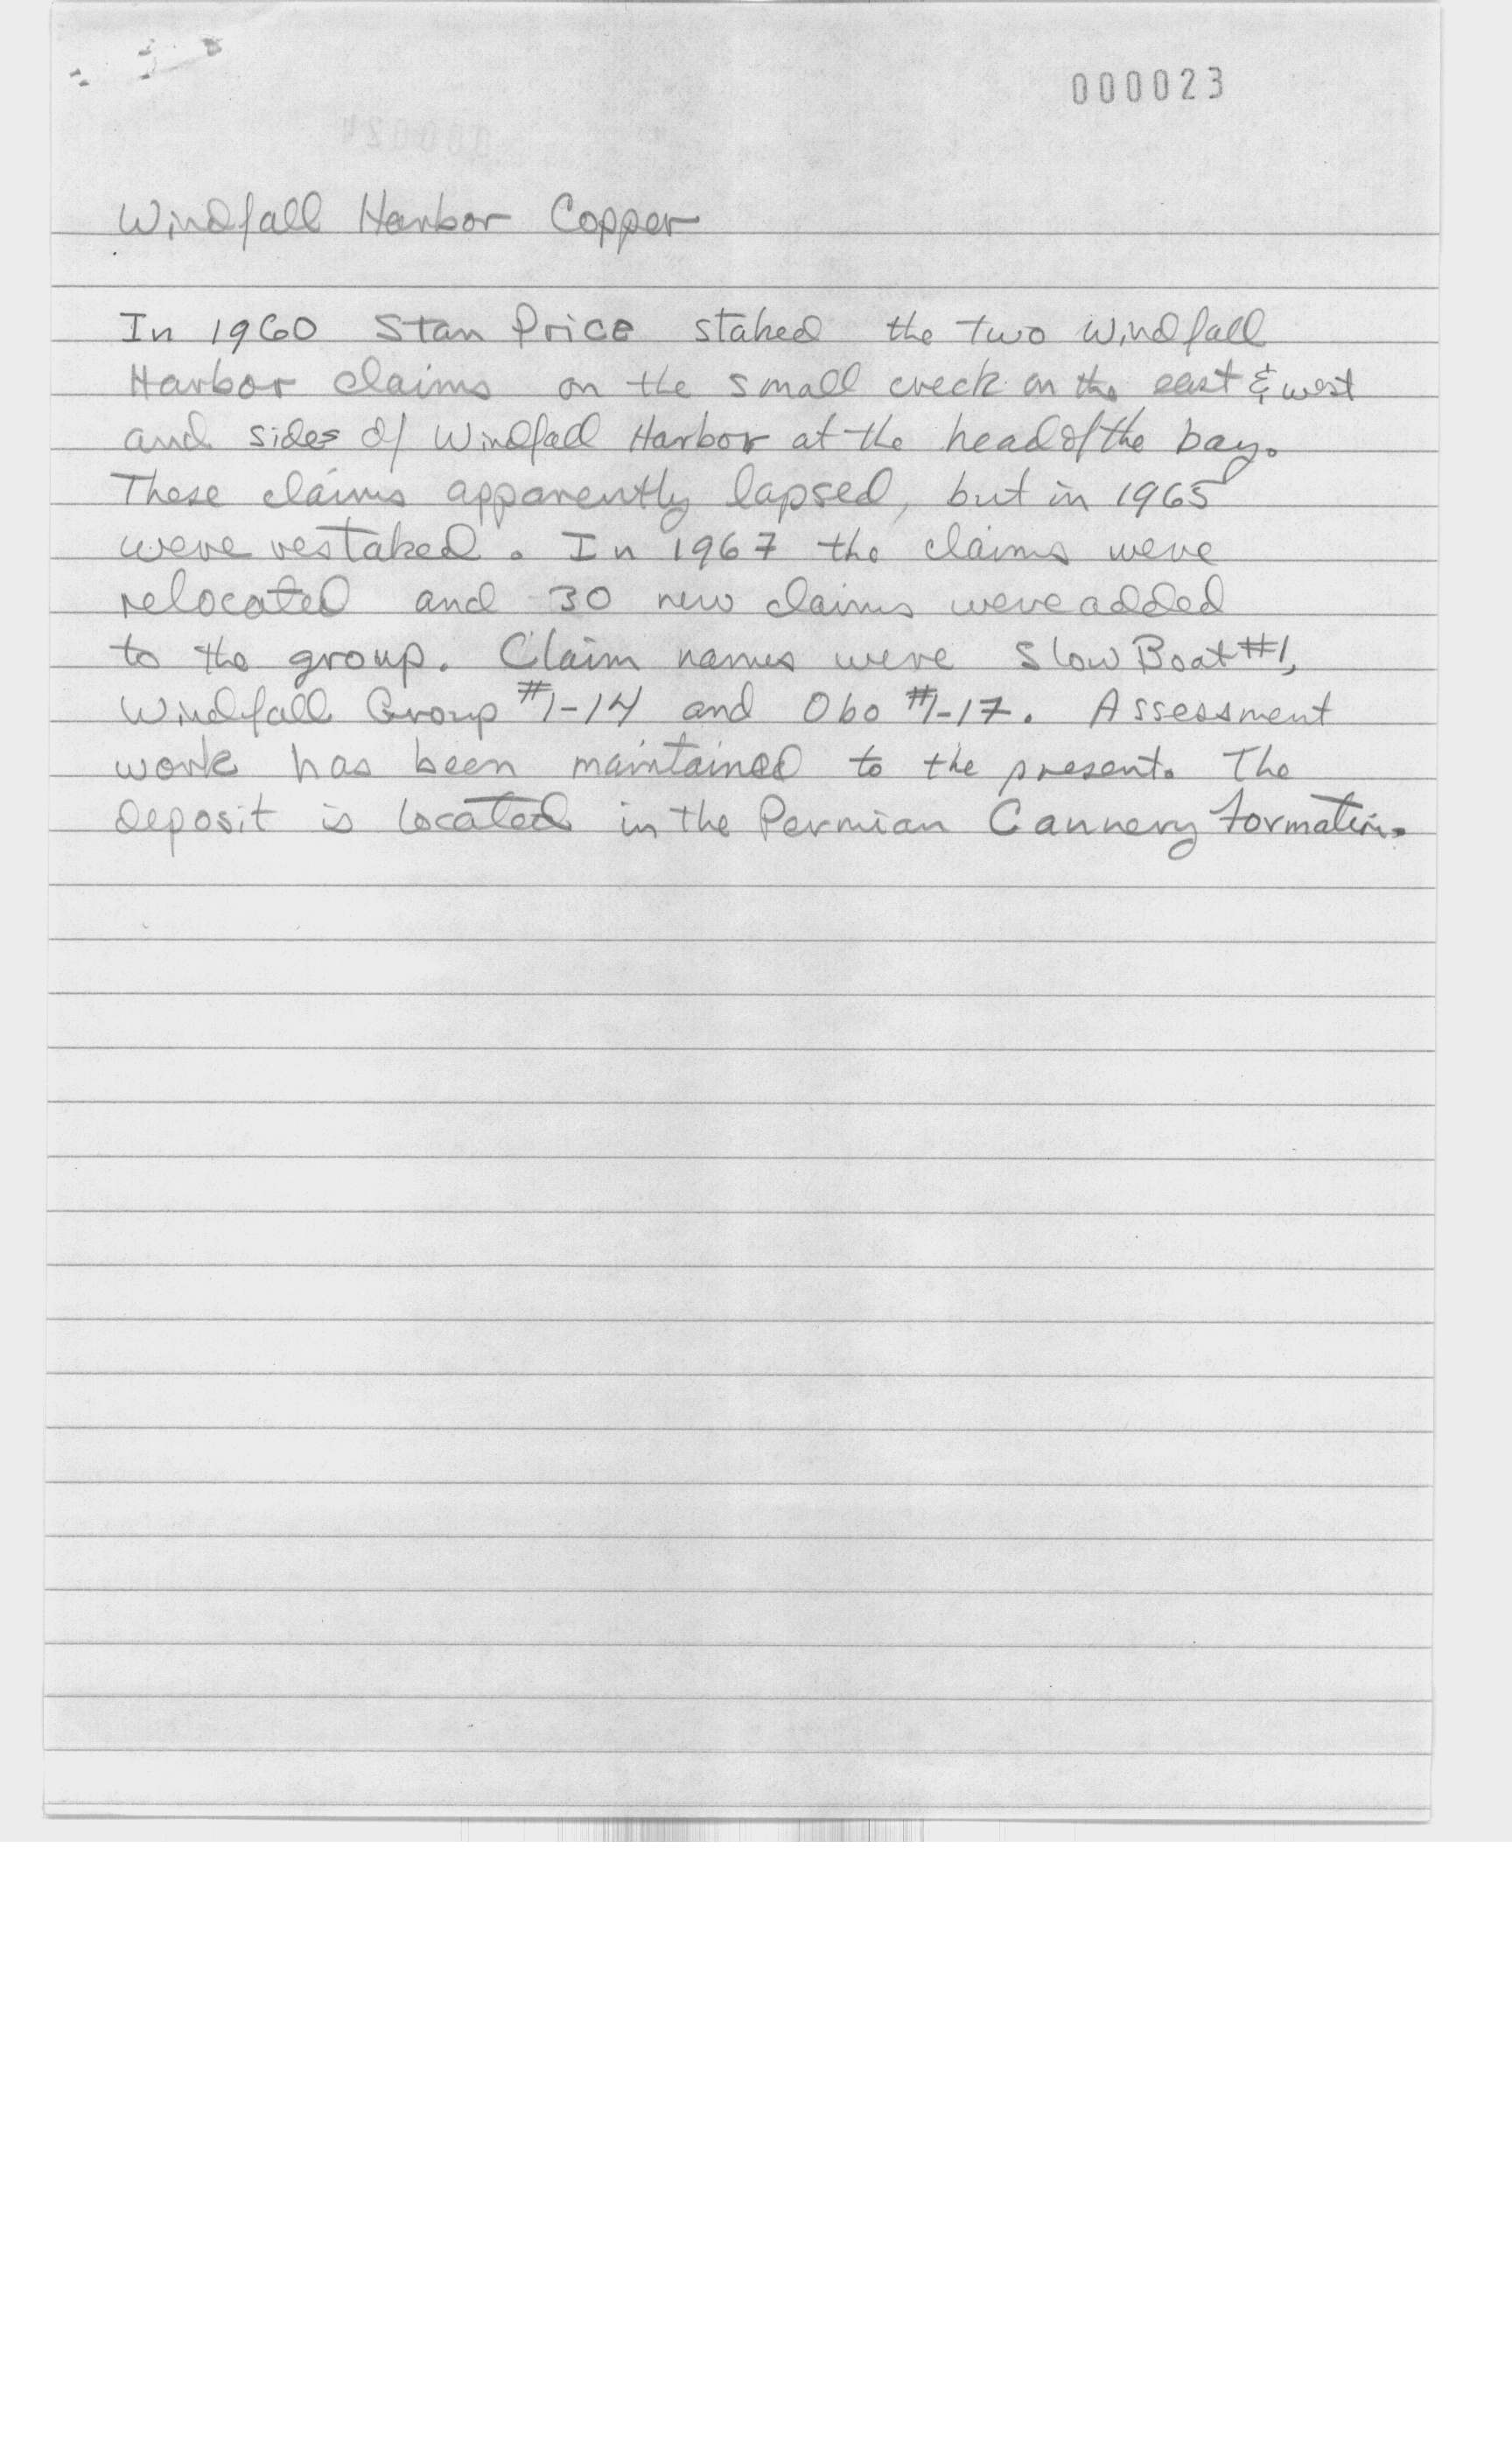 000023
Windfall Harbor Copper
In 1960 Stan Price staked the two Windfall
Harbor claims on the small creek on the east & west
and sides of Windfall Harbor at the head of the bay.
These claims apparently lapsed, but in 1965
were restaked. In 1967 the claims were
relocated and 30 new claims were added
to the group. Claim names were Slow Boat #1,
Windfall Group #1-14 and Obo #1-17. Assessment
work has been maintained to the present. The
deposit is located in the Permian Cannery Formation.